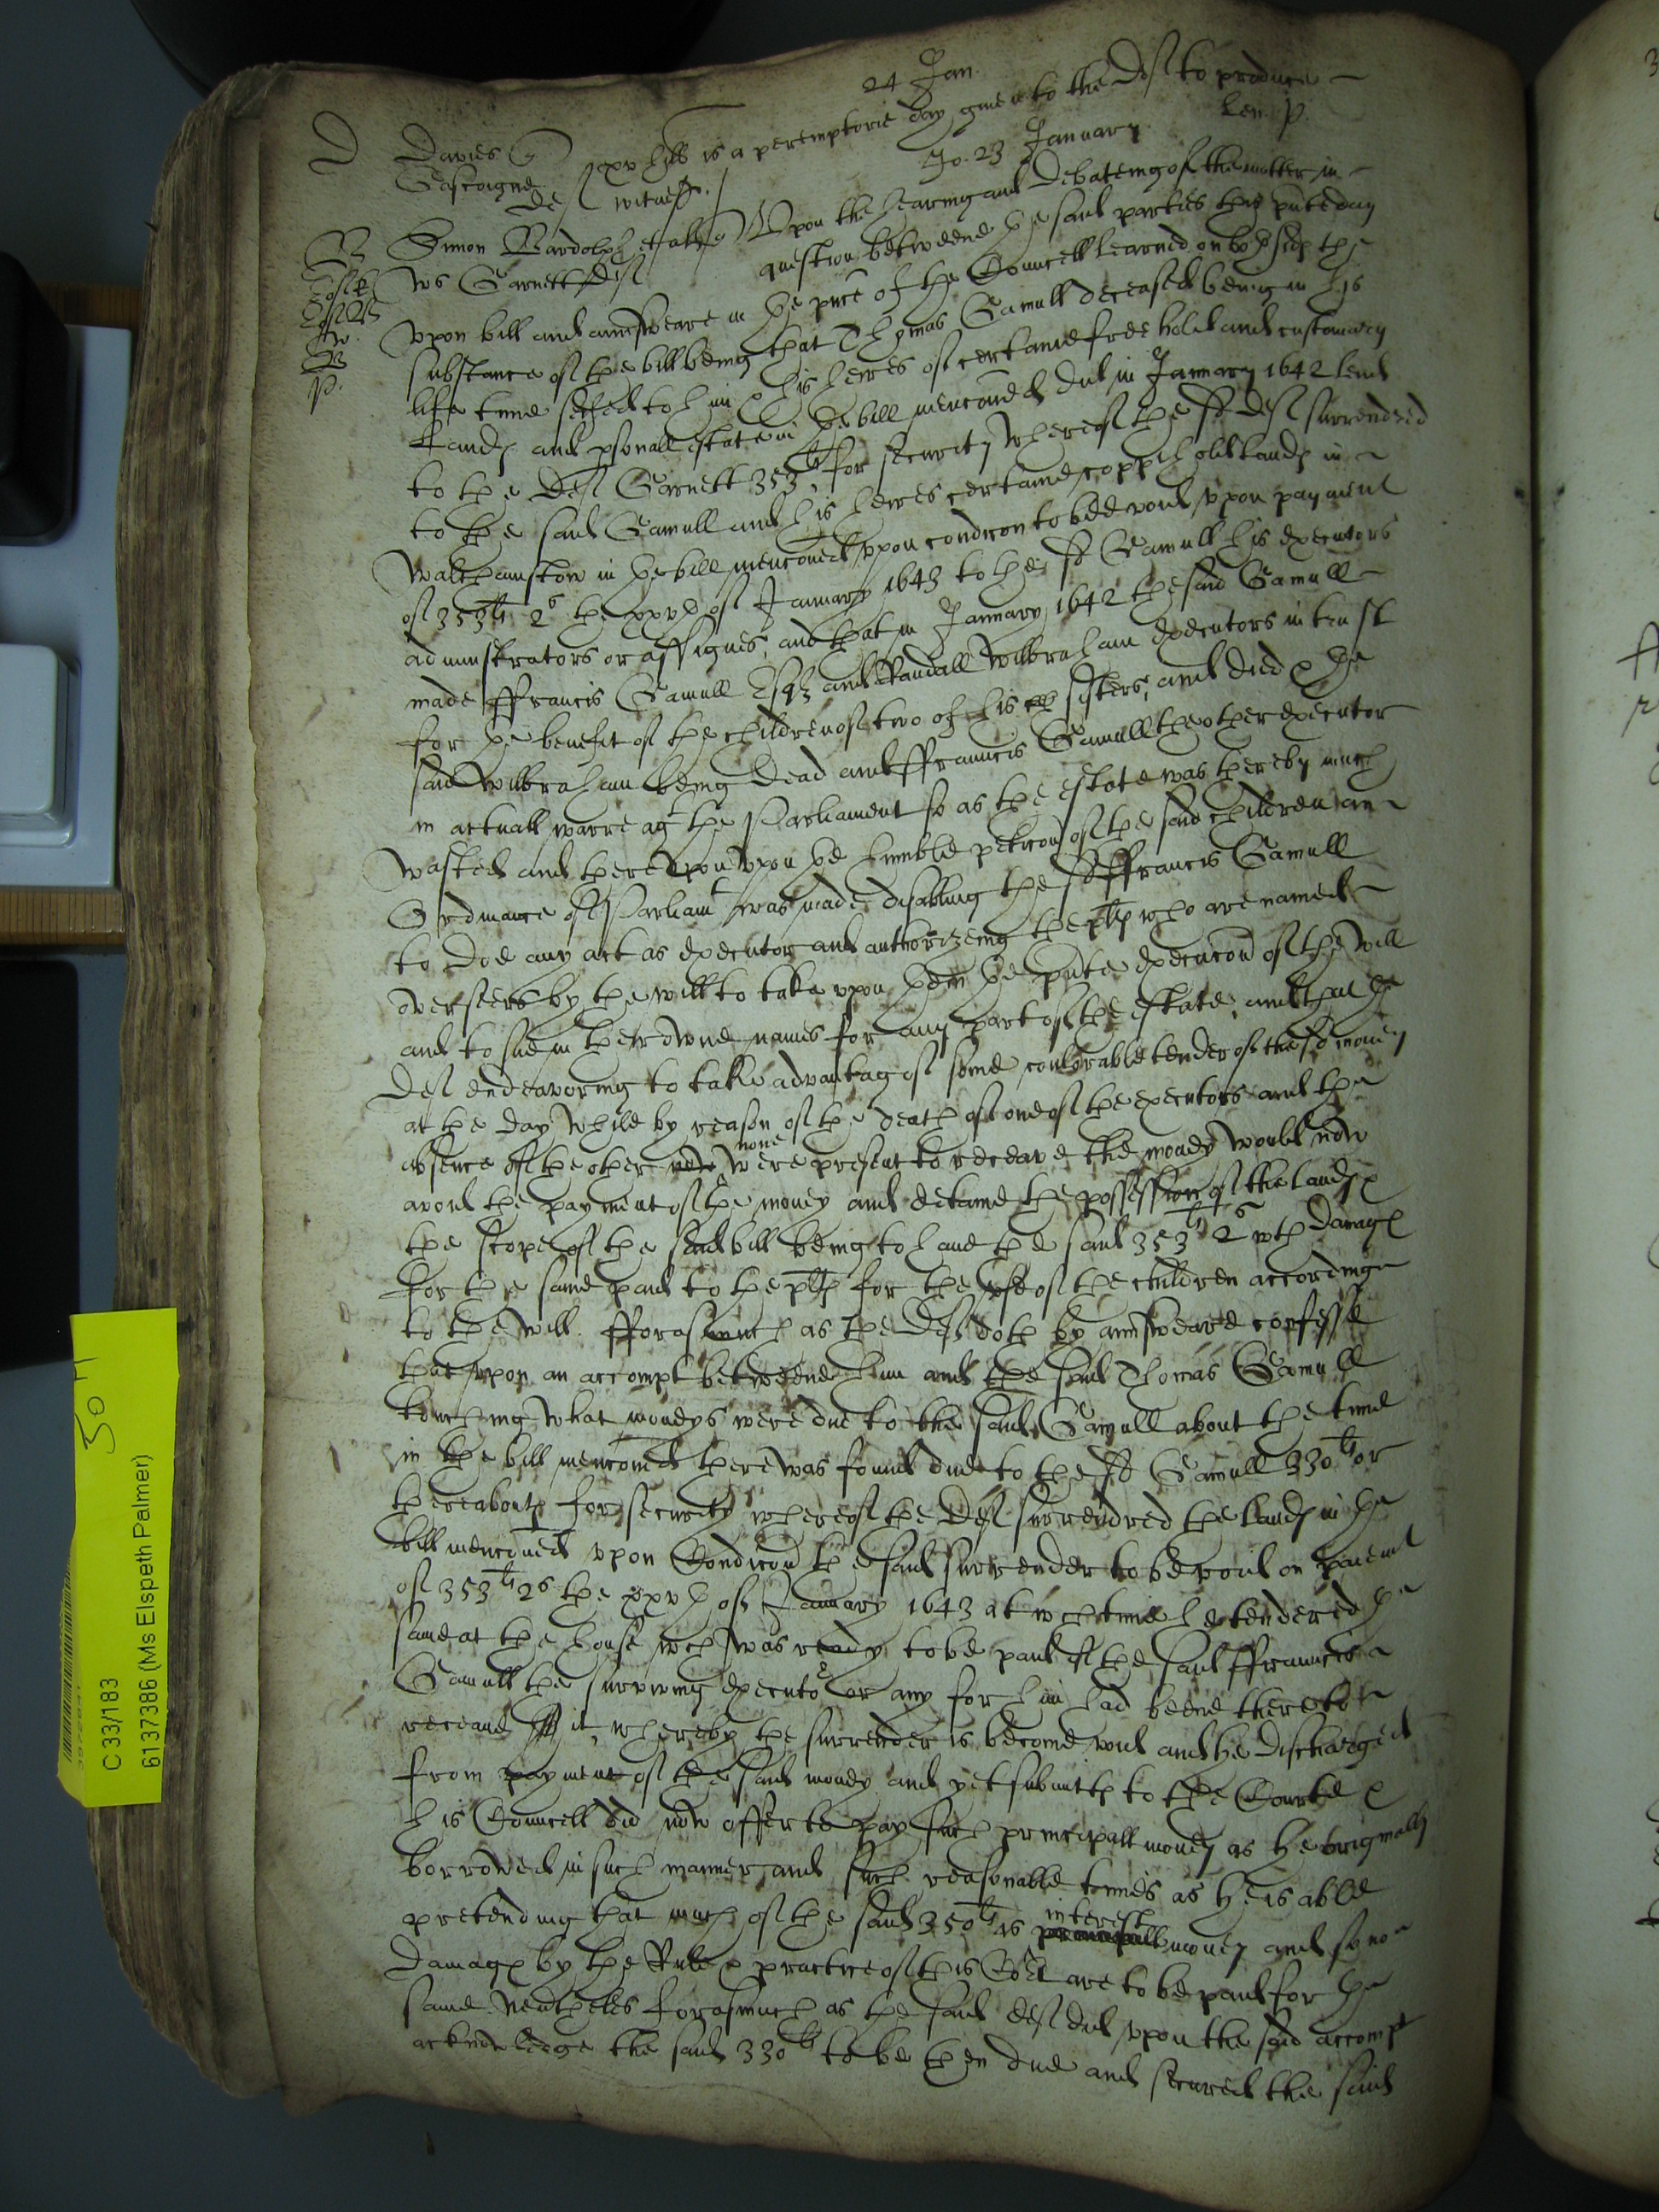 24 Jan.
D Davies Gascoigne def xxv Hill is a peremptorie day given to the Def to produce
witness.
Len. p.
Jo. 23 January
B Simon Bardolph et al Upon the hearing and debateing of the matter in
vs Garnett Def question betweene the said parties this pñte day
upon bill and answeare in the pñce of the Councell learned on both sides the
substance of the bill being that Thomas Gamull deceased being in his
life time seized to him & his heires of certaine freehold and customary
Lands and psonall estate in the bill mencioned did in January 1642 lend
to the Def Garnett 353li for security whereof the sd Def surrendred
to the said Gamull and his heires certaine coppihold lands in
Walthamstow in the bill mencioned upon condicon to bee void upon payment
of 353li 2s the xxvth of January 1643 to the sd Gamull his executors
administrators or assignes, and that in January 1642 the said Gamull
made ffrancis Gamull Esqr and Randall Wilbraham executors in trust
for the benefit of the children of two of his sisters, and died & the
said Wilbraham being dead and ffrancis Gamull the other executor
in actuall warre agt the Parliament so as the estate was thereby much
wasted and thereupon upon the humble peticon of the said children an
Ordinance of Parliamt was made disabling the sd ffrancis Gamull
to doe any act as executor and authorizeing the plts who are named
overseers by the will to take upon them the pñte execucon of the will
and to sue in their owne names for any part of the estate, and that the
Def endeavoring to take advantag of some coulorable tender of the sd money
at the day while by reason of the death of one of the executors and the
absence of the other none were present to receave the money would now
avoid the payment of the money and detaine the possession of the lands &
the scope of the said bill being to have the said 353li 2s wth damages
for the same paid to the plts for the use of the children according
to the will. fforasmuch as the Def doth by answeare confesse
that upon an accompt betweene him and the said Thomas Gamull
touching what moneys were due to the said Gamull about the time
in the bill mencioned there was found due to the sd Gamull 330li or
thereabouts for security whereof the Def surrendred the lands in the
bill mencioned upon Condicon the said surrender to be void on paiemt
of 353li 2s the xxvth of January 1643 at wch time he tendered the
same at the house wch was ready to be paid if the said ffrancis
Gamull the surviving executor or any for him had beene there to
receave it, whereby the surrender is become void and he discharged
from payment of the said money and yet submitts to the Courte &
his Councell did now offer to pay such principall money as he originally
borrowed in such manner and such reasonable times as he is able
pretending that much of the said 350li is interest money and so no
damages by the Rule & practice of this Cort are to be paid for the
same. Neutheles forasmuch as the said def did upon the said accompt
acknowledge the said 330li to be then due and secured the said
C 33/183
6137386 (Ms Elspeth Palmer)